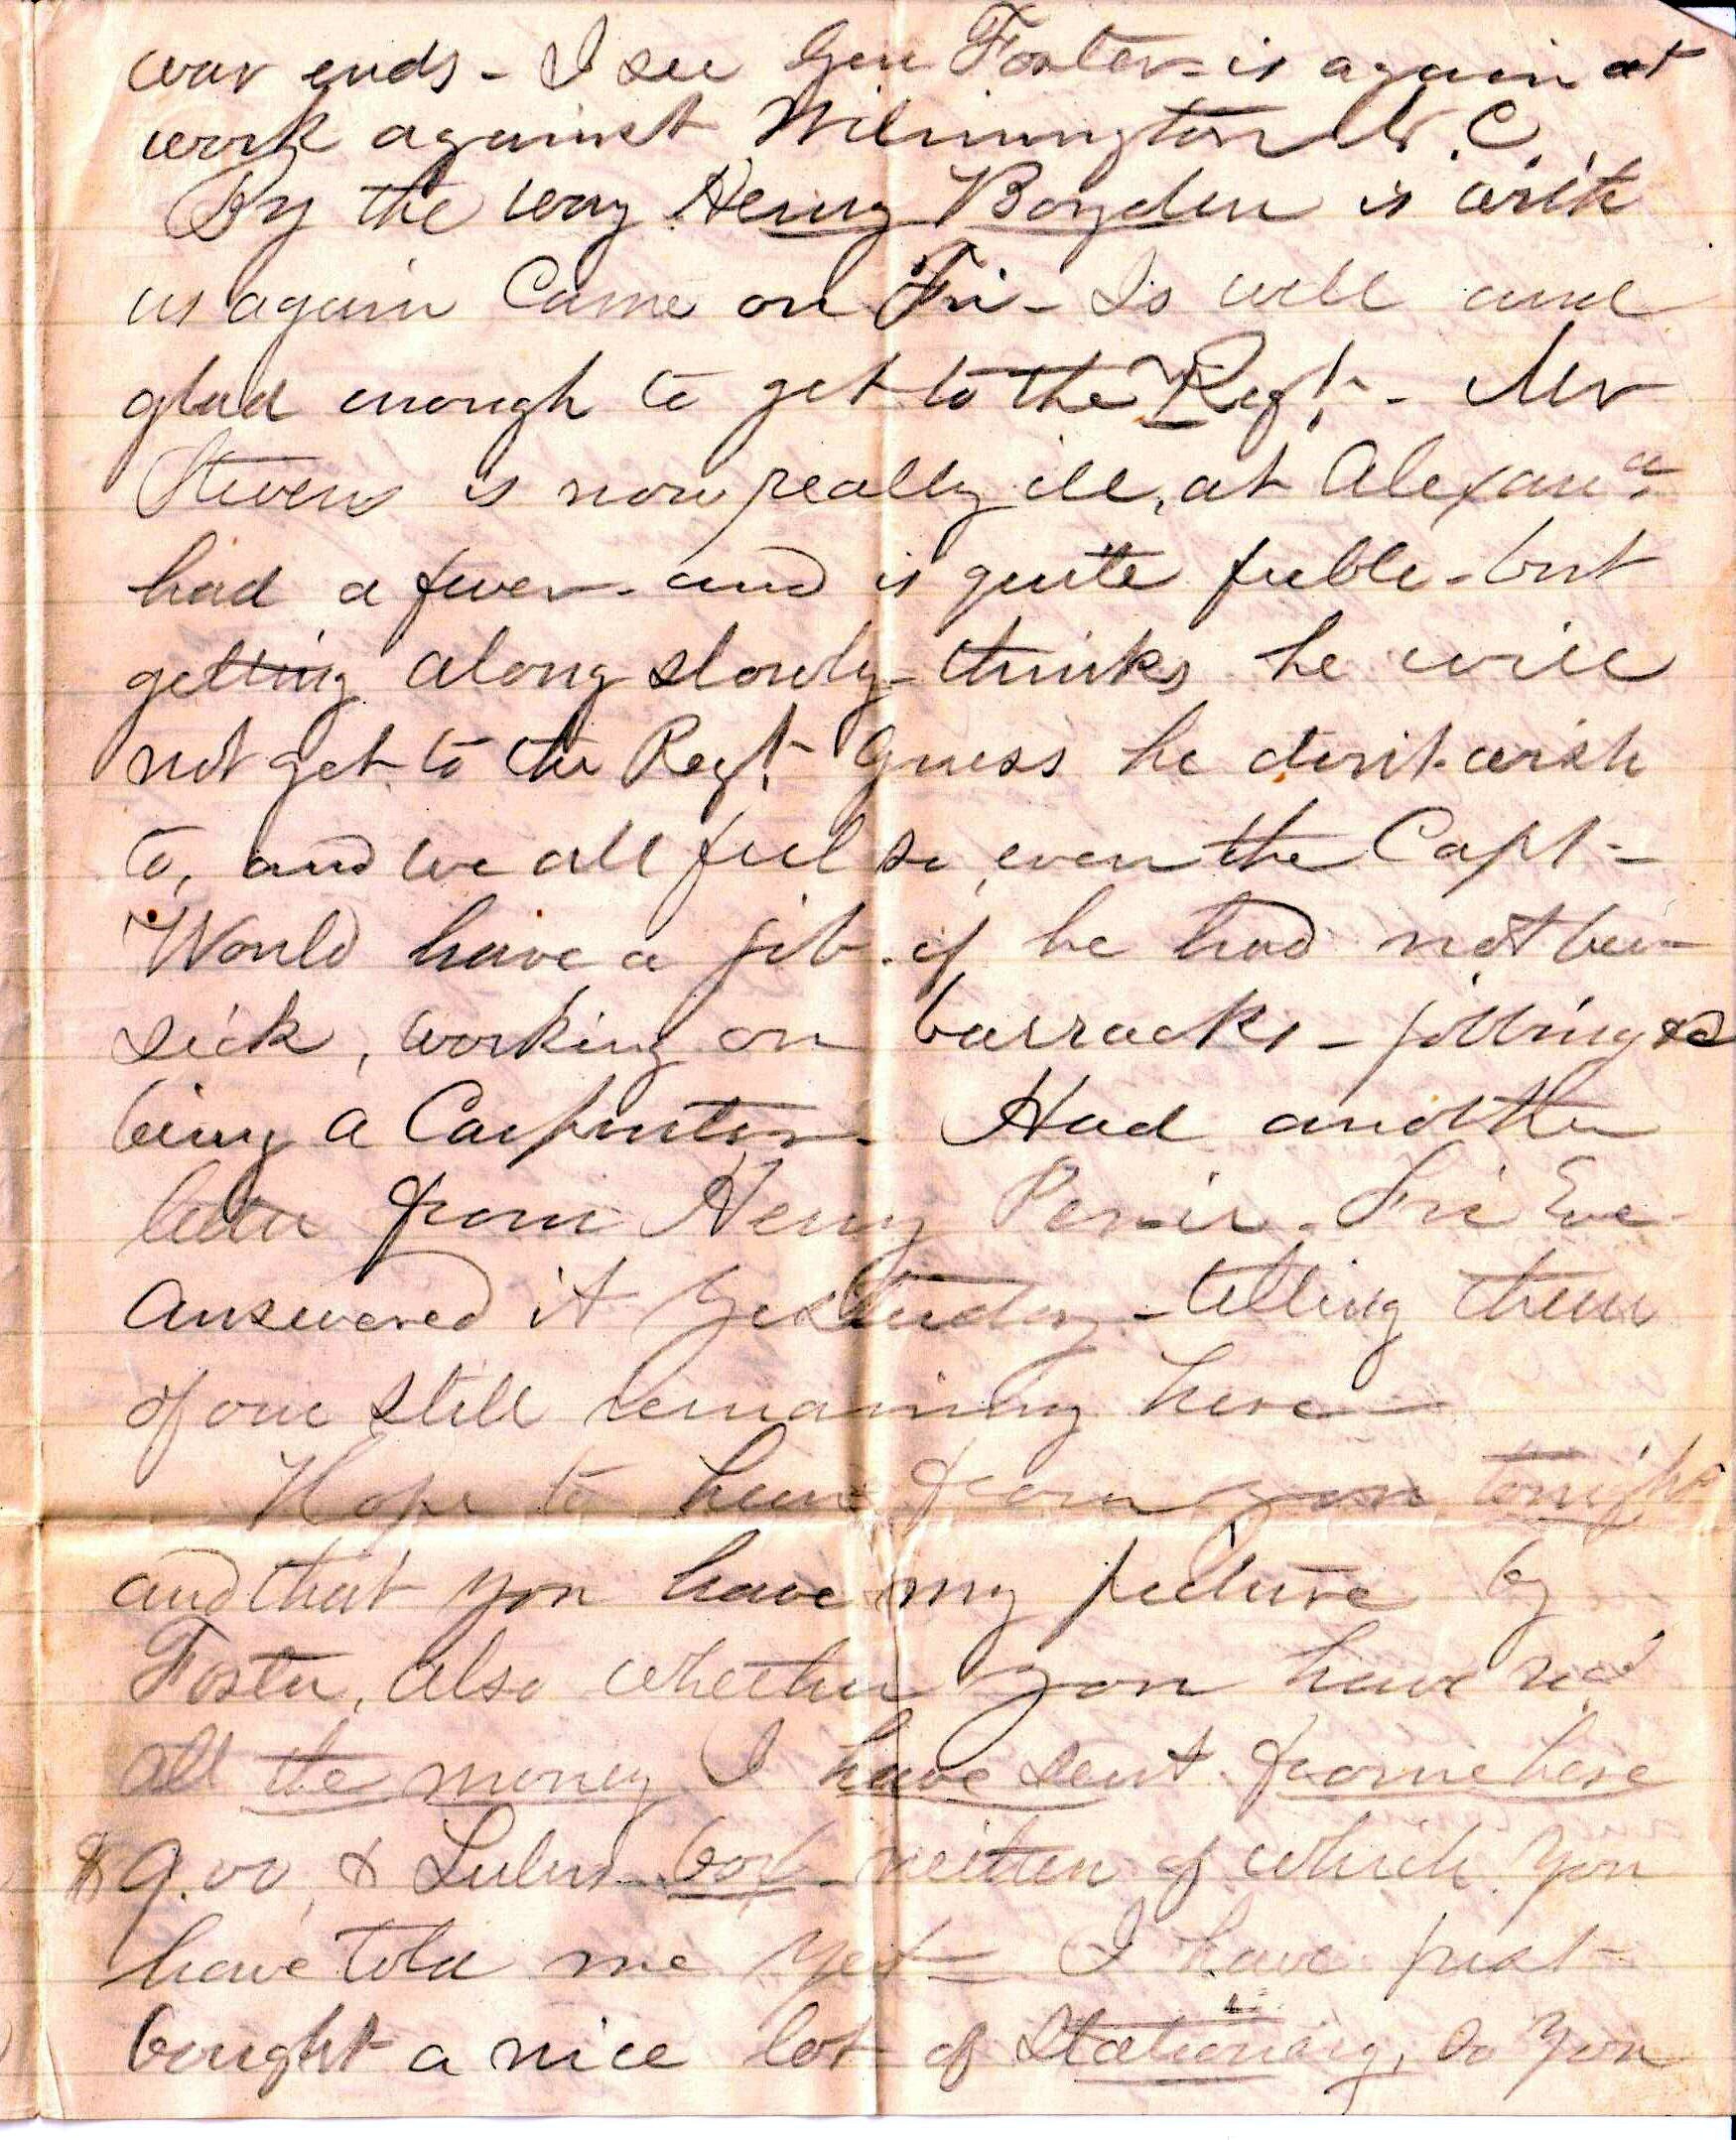 war ends - I see Gen Foster - is again at
work against Wilmington N.C.
By the way Henry Boyden is with
us again Came on Fri - Is well and
glad enough to get to the Regt. - Mr
Stevens is now really ill, at Alexana
had a fever - and is quite feeble - but
getting along slowly - thinks he will
not get to the Regt - Guess he don't wish
to, and we all feel so, even the Capt -
Would have a job - if he had not been
sick, working on barracks - jobbing &c
being a Carpenter - Had another
letter from Henry Fri Eve -
answered it Yesterday - telling them
of our still remaining here -
Hope to hear from you tonight
and that you have my picture by
Foster, also whether you have recd
all the money I have sent from here
$9.00, & Lulus box - neither of which you
have told me yet - I have just
bought a nice lot of Stationary, so you